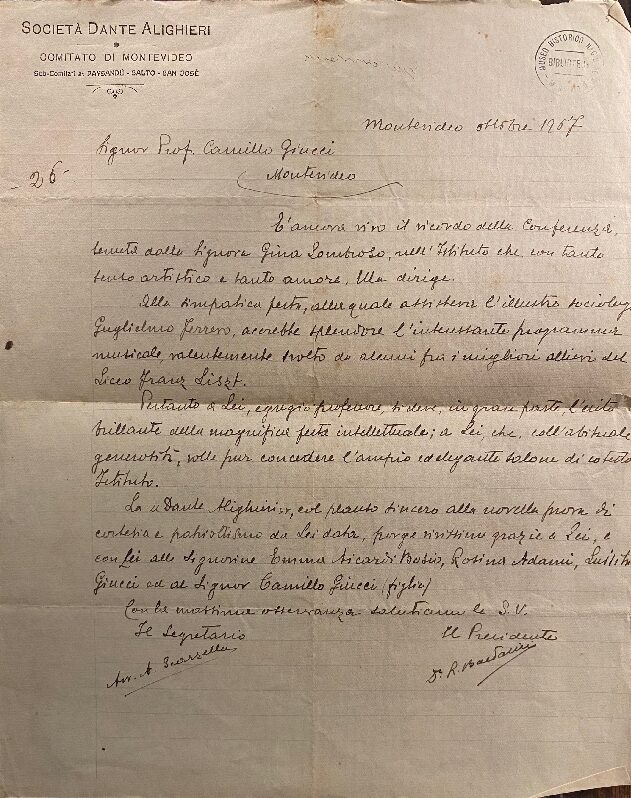 SOCIETÀ DANTE ALIGHIERI
COMITATO DI MONTEVIDEO
Sub-Comitati a: PAYSANDÙ - SALTO - SAN JOSÈ
MUSEO HISTORICO
BIBLIOTE
Montevideo ottobre 1907
Signor Prof. Camillo Giucci
26
Montevideo
E' ancora vivo il ricordo della Conferenza,
tenuta dalla Signora Gina Lombroso, nell'Istituto che con tanto
senso artistico e tanto amore, Ella dirige.
Alla simpatica festa, alla quale assisteva l'illustre sociologo
Guglielmo Ferrero, accrebbe splendore l'interessante programma
musicale, valentemente svolto da alcuni fra i migliori allievi del
Liceo Franz Liszt.
Pertanto a Lei, egregio professore, si deve, in gran parte, l'esito
brillante della magnifica festa intellettuale; a Lei, che, coll'abituale
generosità, volle pur concedere l'ampio ed elegante salone di cotesto
Istituto.
La "Dante Alighieri", col plauso sincero alla novella prova di
cortesia e patriottismo da Lei data, porge vivissime grazie a Lei, e
con Lei alle Signorine Emma Sicardi Bosio, Rosina Adami,
Giucci ed al Signor Camillo Giucci (figlio)
Con la massima osservanza salutiamo la S.V.
Il Segretario Il Presidente
Avv. A Scarzella Dr. R.